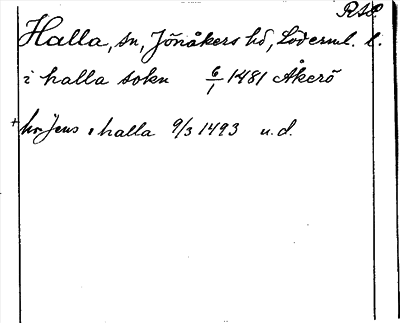 RSS.
Halla, sn, Jönåkers hd, Söderml. l.
i halla sokn 6/1 1481 Åkerö
+ hr Jens i halla 9/3 1493 u.d.